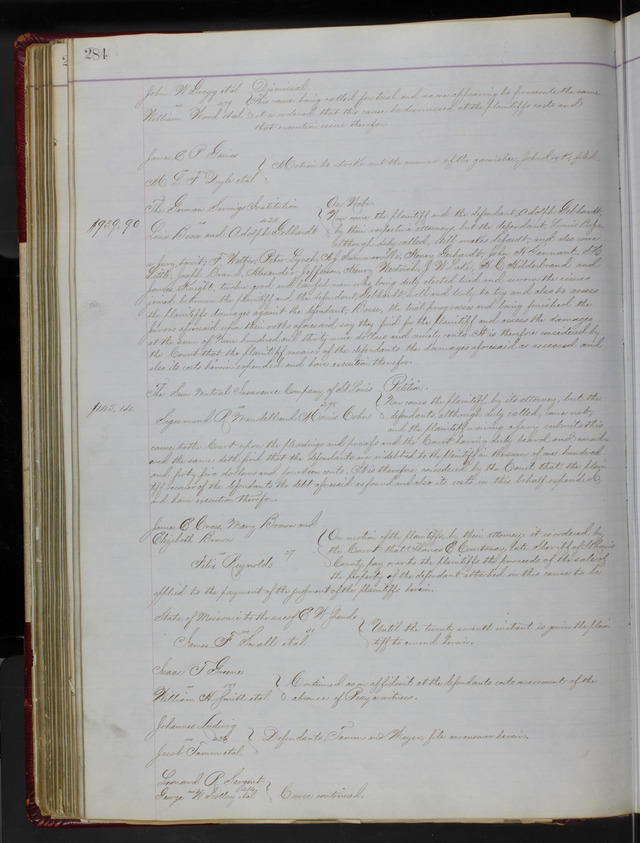 284
John W Gregg et al Dismissal
This cause being called for trial and no one appearing to prosecute the same
William Wood et al it is ordered that this cause be dismissed at the plaintiffs costs and
that execution issue therefor
James E P Gaines
Motion to strike out the answer of the garnishee John Lootz filed
vs
M L F Doyle et al
The German Savings Institution On Note
$939,90 Now come the plaintiff and the defendant Adolph Gebhardt,
Louis Bosse and Adolph Gebhardt by their respective attorneys but the defendant Louis Bosse
although duly called, still makes default, and also come
a jury, towit; Peter Lynch, Henry Gebhardt, John H
Joseph Alexander Jefferson, Henry J W D C Hildebrand and
James Knight, twelve good and lawful men who being duly elected tried and sworn the issues
joined between the plaintiff and the defendant Gebhardt well and truly to try and also to assess
the plaintiffs damages against the defendant Bosse, the trial progresses and being finished the
jurors aforesaid upon their oaths aforesaid, say they find for the plaintiff and assess the damages
at the sum of Nine hundred and thirty nine dollars and ninety cents. It is therefore considered by
the Court that the plaintiff recover of the defendants the damages aforesaid as assessed and
also its costs herein expended and have execution therefor.
The Sun Mutual Insurance Company of St Louis Petition.
$145.14 Now comes the plaintiff by its attorney, but the
Sigismund R Mandell and Morris Cohn defendants although duly called, come not,
and the plaintiff waiving a jury submits this
cause to the Court upon the pleadings and proofs and the Court having duly heard and consid
ered the same, doth find that the defendants are indebted to the plaintiff in the sum of one hundred
and forty five dollars and fourteen cents. It is therefore considered by the Court that the plain
tiff recover of the defendants the debt aforesaid as found and also its costs in this behalf expended
and have execution therefor.
James C Cross, Mary Brown and
Elizabeth Brown On motion of the plaintiffs by their attorney it is ordered by
vs the Court that Thomas C late Sheriff of St Louis
Felix Reynolds County, pay over to the plaintiffs the proceeds of the sale of
the property of the defendant attached in this cause to be
applied to the payment of the judgment of the plaintiffs herein.
State of Missouri to the use of E W
Until the twenty seventh instant is given the plain
James F Small et al tiff to amend herein.
Isaac T Greene
Continued on affidavit at the defendants costs on account of the
William H Smith et al absence of a witness.
Johannes Ludwig
Defendants, Tamm and Meyer, file an answer herein.
Jacob Tamm et al
Leonard R Sargent
George W et al Cause continued.